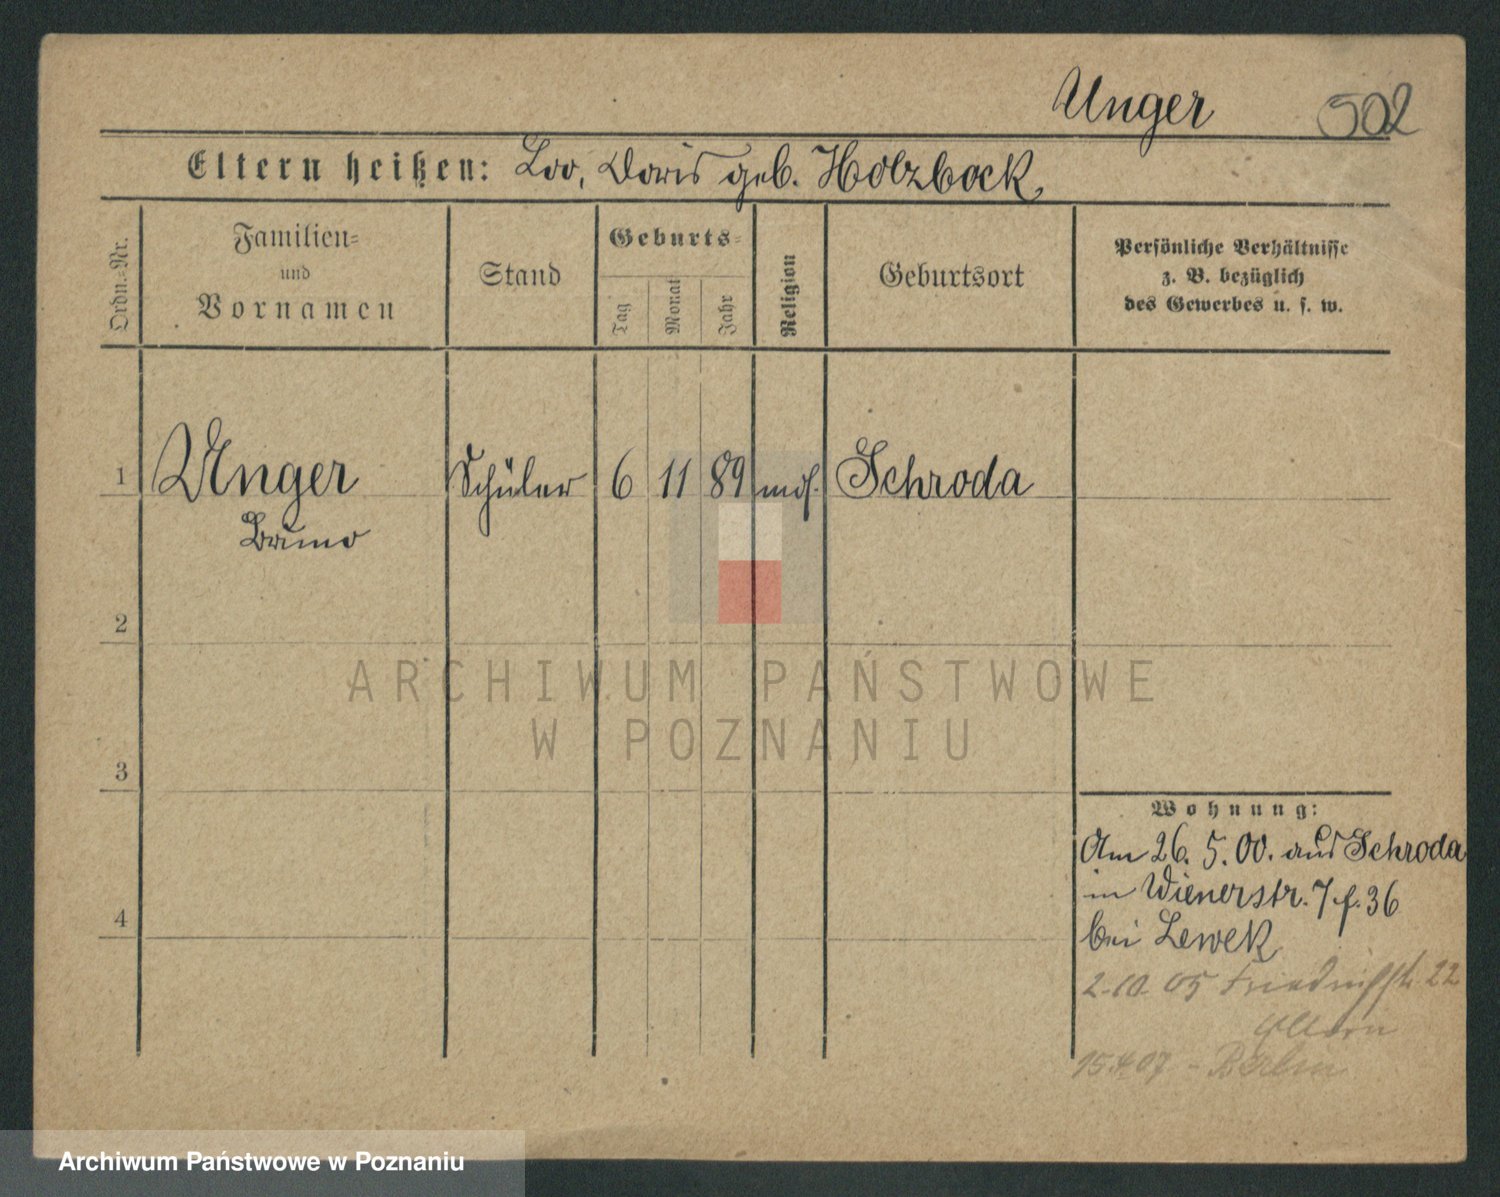 Unger 502
Eltern heißen: Leo, Doris geb. Holzbock,
Ordn.-Nr.
Familien-
und
Vornamen
Stand
Geburts-
Tag
Monat
Jahr
Religion
Geburtsort
Persönliche Verhältnisse
z. B. bezüglich
des Gewerbes u. s. w.
1 Unger Schüler 6 11 89 mos. Schroda
Bruno
2
3
4
Wohnung:
Am 26. 5. 00. aus Schroda
in Wienerstr. 7 f. 36
bei Lewek
2.10.05 Friedrichstr. 22
Eltern
15.4.07 - Berlin
ARCHIWUM PAŃSTWOWE
W POZNANIU
Archiwum Państwowe w Poznaniu